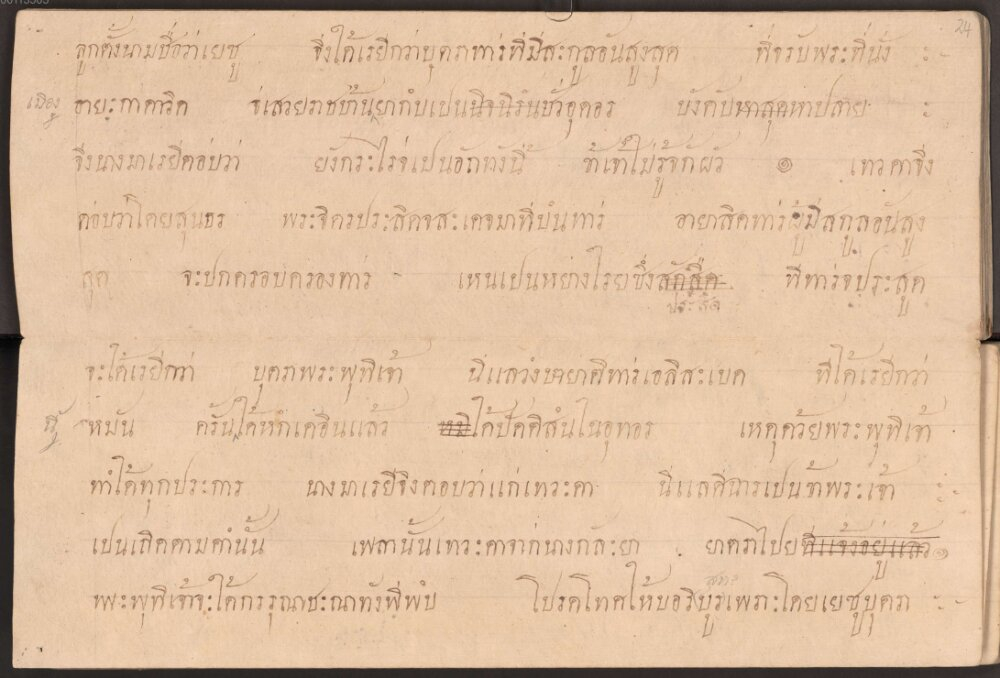 24
ลูกตั้งนามชื่อว่าเยซู จึ่งได้เรยีกว่าบุตรทาร่ที่มีสะกูลอันสูงสุด ที่จรับพระที่นั่ง
เมือง อายะกาดาวิด จ่เสวยราชบ้าน เปนนิจนิรัน บังคับหาสุดหาปลาย
จึงนางมาเรยีตอบว่า ยังกะไรจ่เป็นอักทังนี้ ข้าเจ้าไม่รู้จักผัว ๑ เทวดาจึง
ตอบว่าโดยสุนธร พระจิตรประสิดจสะเดจมาที่บันทาร่ อายาสิดทาร่ผู้มีสกูลอันสูง
สุด จะปกครอบครองทาร่ เหนเปนหย่างไรยซึ่งสักสิด ที่ทาร่จประสูด
ประสิด
จะได้เรยีกว่า บุตรพระพุทิเจ้า นี่แลวังษาญาติทาร่เอลิสะเบด ที่ได้เรยีกว่า
หมัน ครั้นได้หกเดือนแล้ว ได้ปัติสันในอุทอร เหตุด้วยพระพุทิเจ้
ทำได้ทุกประการ นางมาเรยีจึงตอบว่าแก่เทวะดา นี่แลดีฉารเป็นข้าพระเจ้า
เป็นเสิดตามคำนั้น เพลานั้นเทวะดาจาก่นางกัละยา ยาตราไปย ที่แจ้งอยู่แล้ว ๑
พระพุทิเจ้าจะได้กรรุณ โปรดโทศให้บอริบูร โดยเยซูบุตร